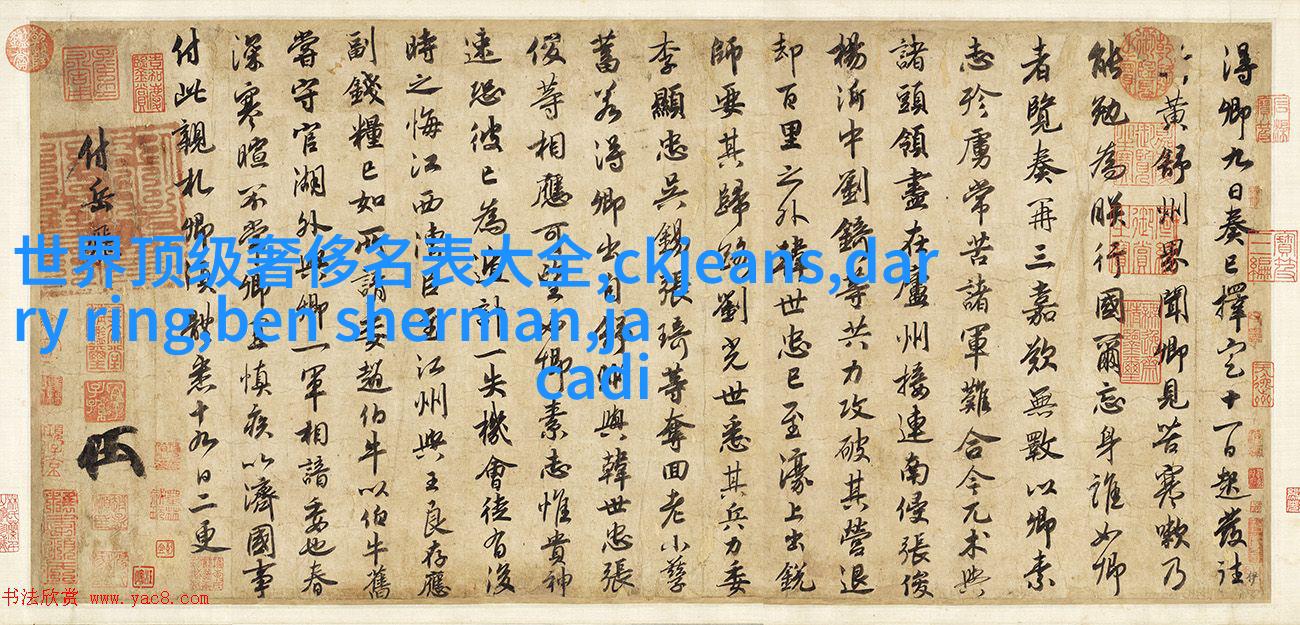 得卿九日奏已擇定十一日起發往
黃舒州界聞卿見苦寒嗽乃
能勉為朕行國爾忘身誰如卿
者覽奏再三嘉歎無斁以卿素
志殄虜常苦諸軍難合今兀术與
諸頭領盡在廬州接連南侵張俊
楊沂中劉錡等共力攻破其營退
却百里之外韓世忠已至濠上出銳
師要其歸路劉光世悉其兵力委
李顯忠吳錫張琦等奪回老小孳
畜若得卿出自舒州與韓世忠張
俊等相應可望如卿素志惟貴神
速恐彼已為遁計一失機會徒有後
時之悔江西漕臣至江州與王良存應
副錢糧已如所請委趙伯牛以伯牛舊
嘗守官湖外與卿一軍相諳委也春
深寒暄不常卿宜慎疾以濟國事
付此親札卿須體悉十九日二更
付岳飛
世界顶级奢侈名表大全,ckjeans,dar
ry ring,ben sherman,ja
cadi
书法欣赏 www.yac8.com